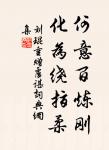 何意百炼刚
化为绕指柔
刘琨重赠卢谌词典网
集